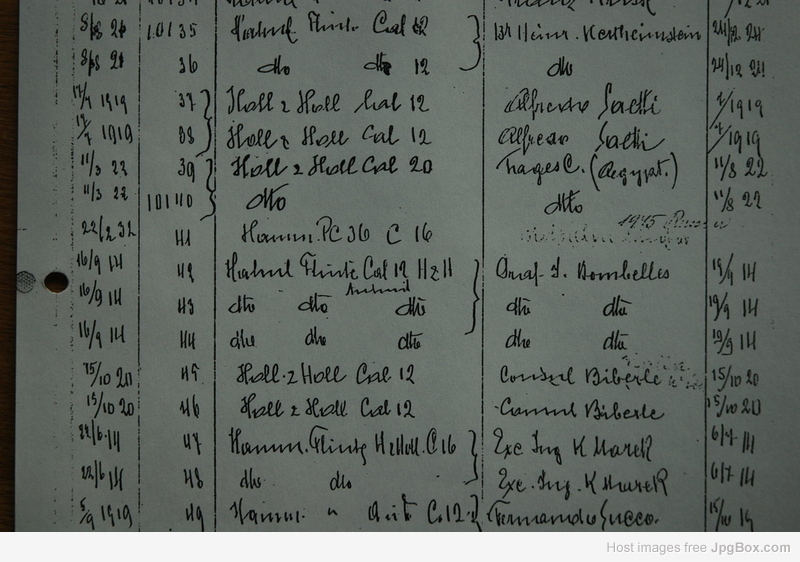 8/8 21 10135 Hahnl. Flinte Cal 12 24/12 21
8/8 21 36 dto dto 12 dto 24/12 21
17/7 1919 37 Holl & Holl Cal 12 Alfredo 7/1919
17/7 1919 38 Holl & Holl Cal 12 Alfredo 7/1919
11/3 22 39 Holl & Holl Cal 20 Trages C. (Aegypt.) 11/8 22
11/3 22 10140 dto dto 11/8 22
1945
22/2 32 41 Hamm. PC 36 C 16
16/9 14 42 Hahnl Flinte Cal 12 H & H Graf. J. Bombelles 19/9 14
16/9 14 43 dto dto dto dto dto 19/9 14
16/9 14 44 dto dto dto dto dto 19/9 14
15/10 20 45 Holl. & Holl Cal 12 Consul Biberle 15/10 20
15/10 20 46 Holl & Holl Cal 12 Consul Biberle 15/10 20
22/6 14 47 Hamm. Flinte H & Holl. C 16 Exc Ing K Marek 6/7 14
22/6 14 48 dto dto Exc. Ing. K Marek 6/7 14
5/9 1919 49 Hamm. " C. 12. Fernando Sucec. 15/10 19
Host images free JpgBox.com